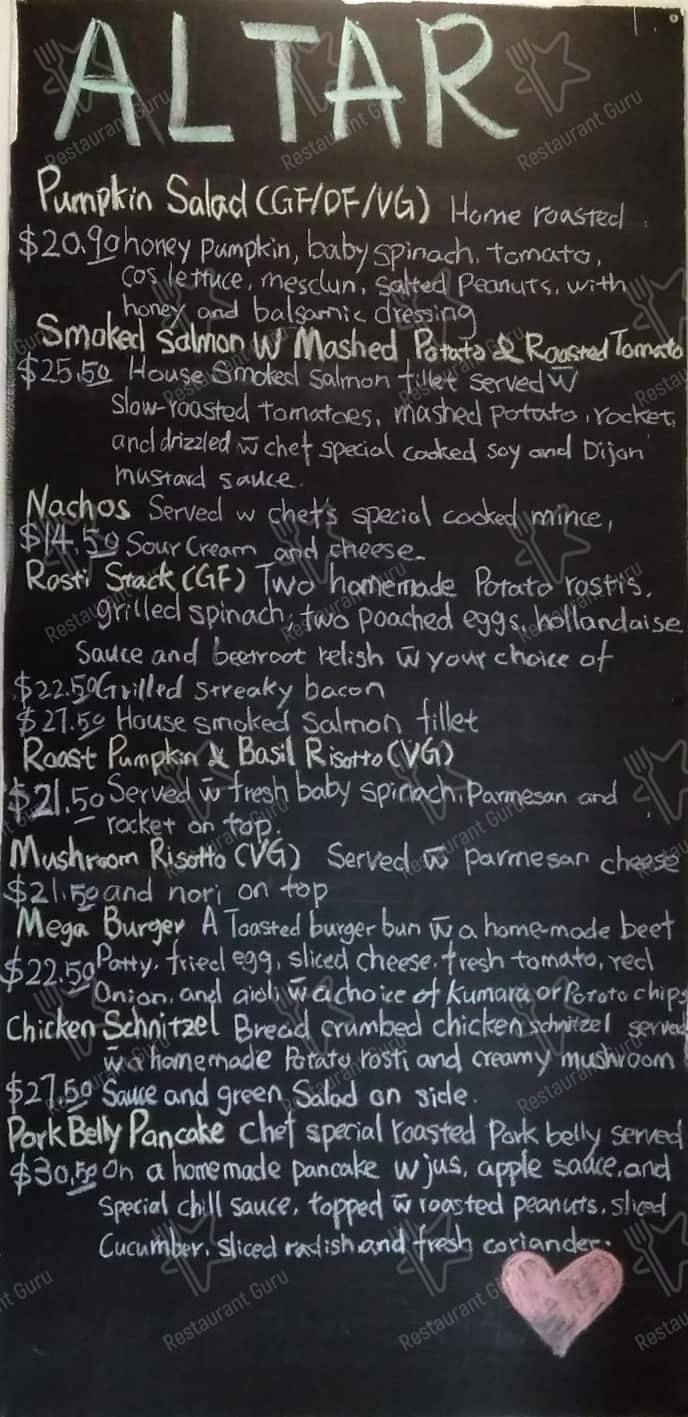 ALTAR
Pumpkin Salad (GF/DF/VG) Home roasted
$20.90 honey pumpkin, baby spinach, tomato,
cos lettuce, mesclun, salted Peanuts, with
honey and balsamic dressing
Smoked Salmon W Mashed Potato & Roasted Tomato
$25.50 House Smoked salmon fillet served w̄
slow-roasted tomatoes, mashed potato, rocket,
and drizzled w̄ chef special cooked soy and Dijon
mustard sauce.
Nachos Served w chef's special cooked mince,
$14.50 Sour Cream and cheese.
Rosti Stack (GF) Two homemade Potato rostis,
grilled spinach, two poached eggs, hollandaise
Sauce and beetroot relish w̄ your choice of
$22.50 Grilled streaky bacon
$27.50 House smoked Salmon fillet
Roast Pumpkin & Basil Risotto (VG)
$21.50 Served w̄ fresh baby spinach, Parmesan and
rocket on top.
Mushroom Risotto (VG) Served w̄ parmesan cheese
$21.50 and nori on top
Mega Burger A Toasted burger bun w̄ a home-made beef
$22.50 Patty, fried egg, sliced cheese, fresh tomato, red
Onion, and aioli w̄ a choice of Kumara or Potato chips
Chicken Schnitzel Bread crumbed chicken schnitzel served
w̄ a homemade Potato rosti and creamy mushroom
$27.50 Sauce and green Salad on side.
Pork Belly Pancake Chef special roasted Pork belly served
$30.50 On a homemade pancake w jus, apple sauce, and
Special chill sauce, topped w̄ roasted peanuts, sliced
Cucumber, sliced radish and fresh coriander.
Restaurant Guru